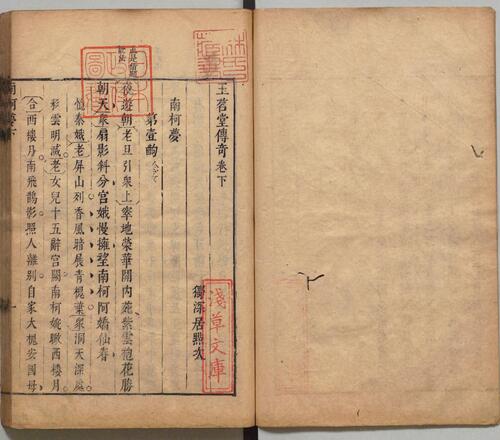 玉茗堂傳奇卷下
獨深居點次
南柯夢
第壹齣
夜遊朝老旦引衆上宰地榮華閫內苑紫雲袍花勝
朝天衆扇影斜分宮娥慢擁望南柯阿嬌仙眷
憶秦娥老屏山列香風暗展青槐葉衆洞天深處
彩雲明滅老女兒十五辭宮闕南柯婉瞅西樓月
合西樓月南飛鵲影照人離別自家大槐安國母
南柯夢下
淺草文庫